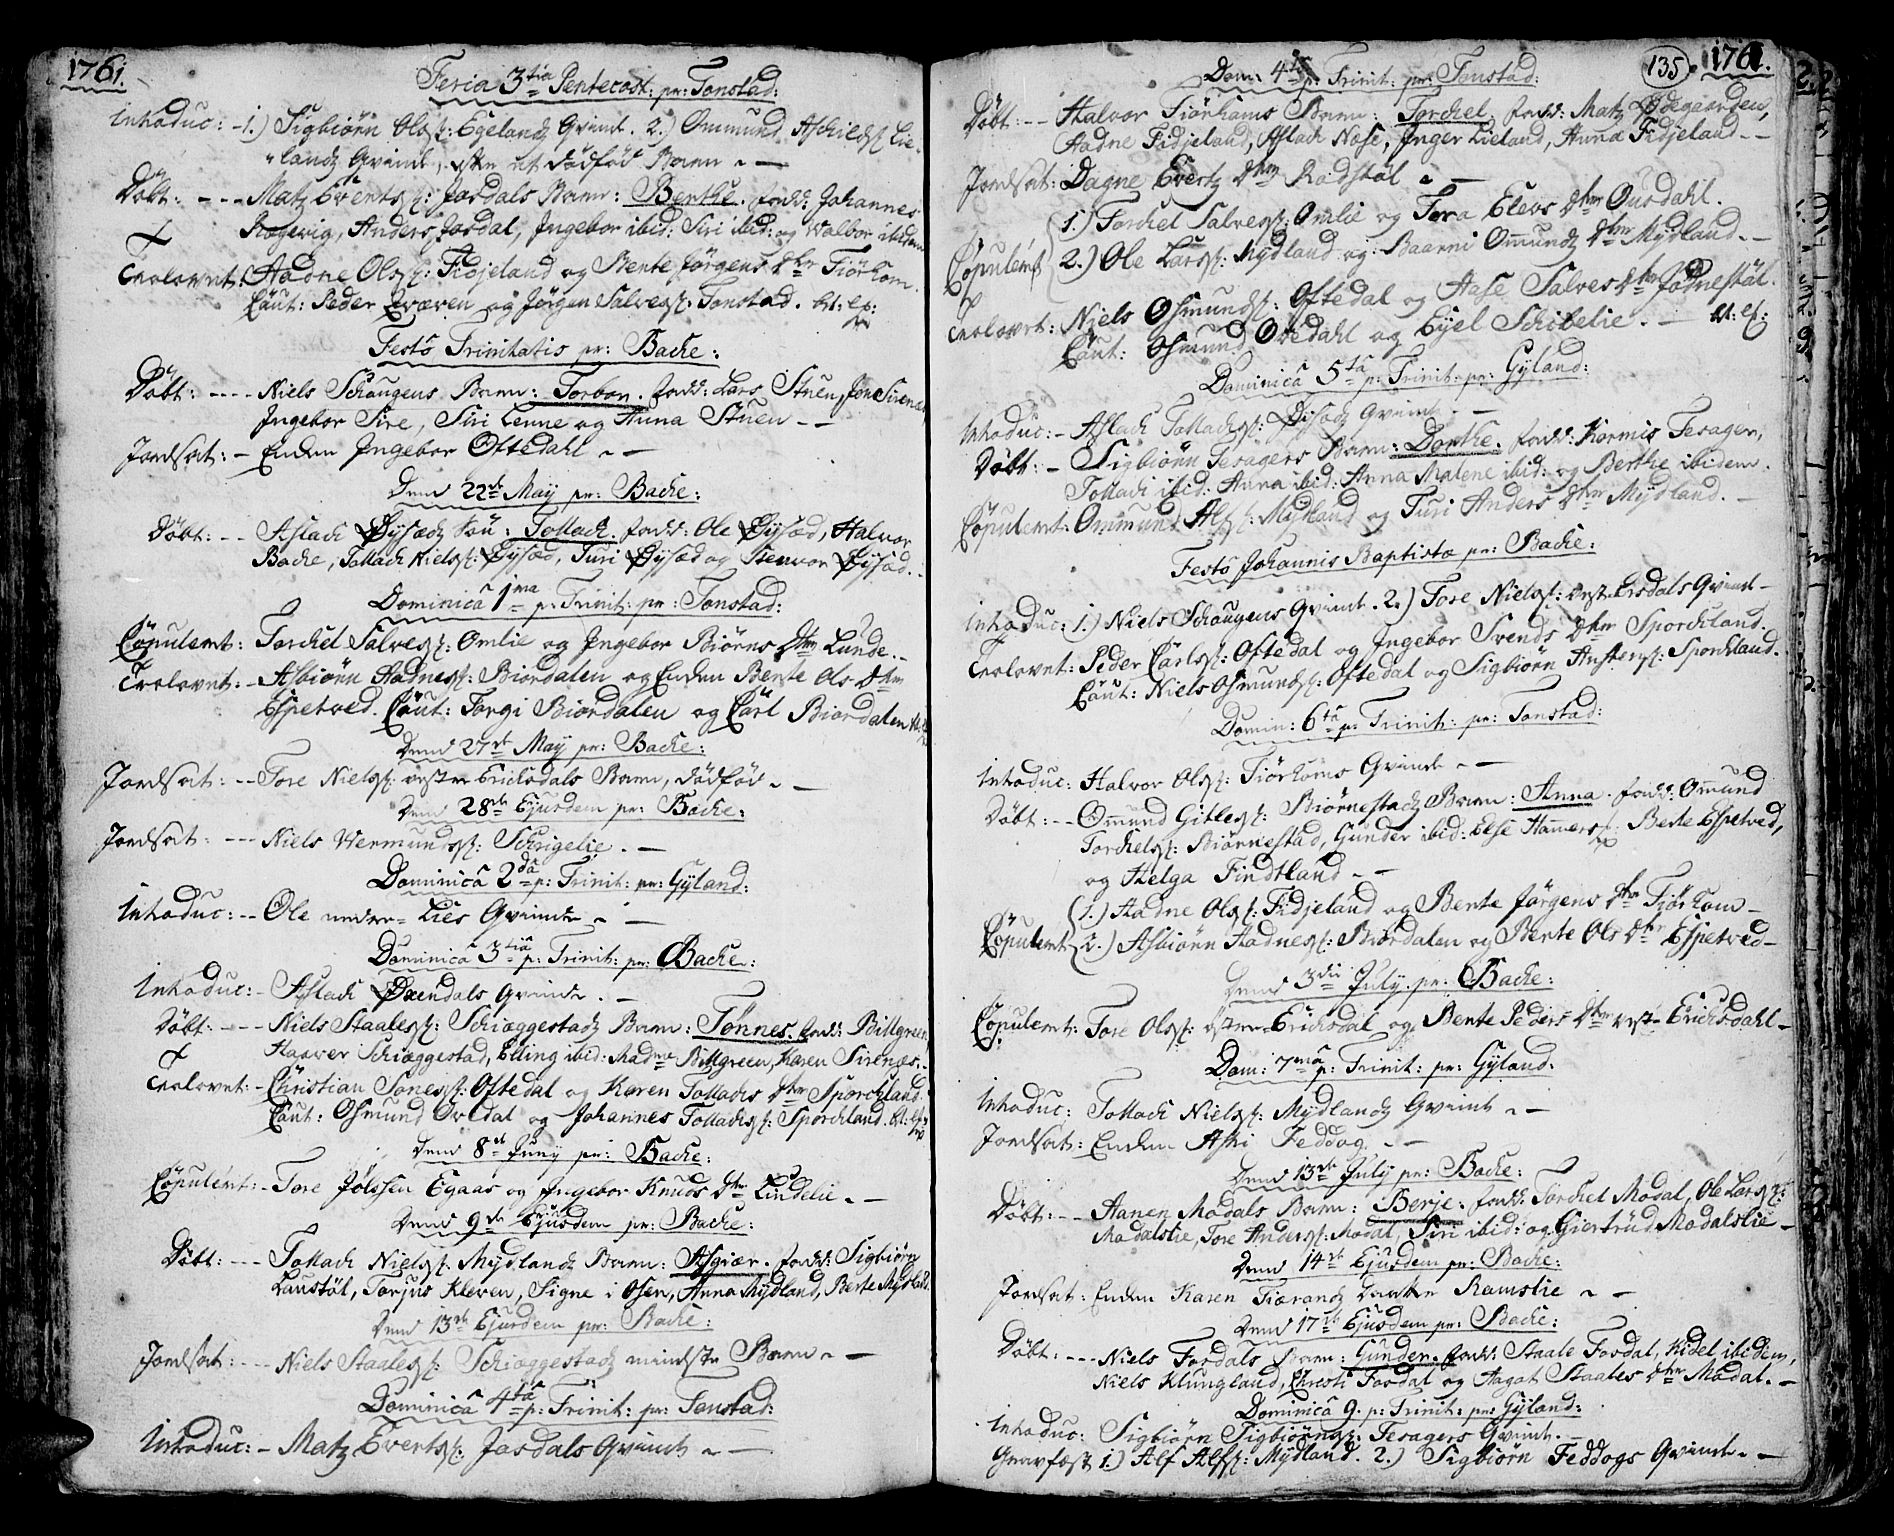 1761.
Feria 3tia Pentecost: pr: Tonstad:
Introduc: - 1.) Sigbiörn Ols: Egelands Qvinde. 2.) Ommund Aschilds: Lie-
lands Qvinde, efter et dödföd Barn. -
Döbt: --- Matz Everts: Josdals Barn: Berthe. fadd: Johannes
Røgevig, Anders Josdal, Ingebor ibid: Siri ibid: og Valbor ibidem
Trolovet: Aadne Ols: Fidjeland og Bente Jörgens Dtter Tiörhom.
Caut: Peder Qvæven og Jörgen Salves: Tonstad.
Festo Trinitatis pr: Backe:
Döbt: ---- Niels Schougens Barn: Torbor. fadd: Lars Stuen, Jon Sirenæs
Ingebor Sire, Siri Lenne og Anna Stuen --
Jordsat: - Enken Ingebor Oftedahl. -
Dend 22de May pr: Backe:
Döbt: -- Aslach Öysæds Sön: Tollach. fadd: Ole Öysæd, Halvor
Backe, Tollach Niels: Öysæd, Turi Öysæd og Steinvor Öysæd. -
Dominica 1ma p: Trinit: pr: Tonstad:
Copuleret: Torchel Salves: Omlie og Ingebor Biörns Dtter Lunde. -
Trolovet: - Asbiörn Aadnes: Biordalen og Enken Bente Ols Dtter
Espetved. Caut: Torgi Biordalen og Carl Biordalen
Dend 27de May pr: Backe:
Jordsat: -- Tore Niels: vestre Erichsdals Barn, dödföd. -
Dend 28de Ejusdem pr: Backe:
Jordsat: --- Niels Vermunds: Schigelie. -
Dominica 2da p: Trinit: pr: Gyland:
Introduc: -- Ole nedre-Lies Qvinde. -
Dominica 3tia p: Trinit: pr: Backe:
Introduc: - Aslach Öxendals Qvinde. -
Döbt: --- Niels Staales: Schiæggestads Barn: Tönnes. fadd: Billgreen,
Haaver Schiæggestad, Elling ibid: Madme Billgreen, Karen Sirenæs. -
Trolovet: - Christian Tones: Oftedal og Karen Tollachs Dtter Sporchland.
Caut: Osmund Ovedal og Johannes Tollachs: Sporchland.
Dend 8de Juny pr: Backe:
Copuleret: - Tore Jölssen Egaas og Ingebor Knuds Dtter Lindelie. -
Dend 9de Ejusdem pr: Backe:
Döbt: --- Tollach Niels: Mydlands Barn: Asgiær. fadd: Sigbiörn
Laustöl, Torjus Kleven, Signe i Osen, Anna Mydland, Berte Mydland.
Dend 13de Ejusdem pr: Backe:
Jordsat: --- Niels Staales: Schiæggestads mindste Barn. -
Dominica 4ta p: Trinit: pr: Tonstad:
Introduc: - Matz Everts: Josdals Qvinde. -
135. 1761.
Dom: 4ta p: Trinit: pr: Tonstad:
Döbt: -- Halvor Tiörhoms Barn: Torchel. fadd: Matz Ödegaarden,
Aadne Fidjeland, Aslach Nose, Inger Lieland, Anna Fidjeland --
Jordsat: Dagne Everts Dtter Rodstöl. -
Copuleret 1.) Torchel Salves: Omlie og Tora Elevs Dtter Ousdahl.
2.) Ole Lars: Mydland og Baarni Ommunds Dtter Mydland. -
Trolovet: Niels Osmunds: Oftedal og Aase Salves Dtter Fodnestöl.
Caut: Osmund Ovedahl og Eyel Schibelie. -
Dominica 5ta p: Trinit: pr: Gyland:
Introduc: - Aslach Tollachs: Öysæds Qvinde. -
Döbt: - Sigbiörn Tesagers Barn: Dorthe. fadd: Kormis Tesager,
Tollach ibid: Anna ibid: Anna Malene ibid: og Berthe ibidem.
Copuleret: Ommund Alfs: Mydland og Turi Anders Dtter Mydland. -
Festo Johannis Baptistæ pr: Backe:
Introduc: 1.) Niels Schougens Qvinde. 2.) Tore Niels: vest-Ersdals Qvinde -
Trolovet: Peder Carls: Oftedal og Ingebor Svends Dtter Sporchland.
Caut: Niels Osmunds: Oftedal og Sigbiörn Austens: Sporchland.
Domin: 6ta p: Trinit: pr: Tonstad:
Introduc: Halvor Ols: Tiörhoms Qvinde. -
Döbt: -- Ommund Gitles: Biörnestads Barn: Anna. fadd: Ommund
Torchels: Biörnestad, Gunder ibid: Else Hammers: Berte Espetved,
og Helga Findtland --
Copuleret 1.) Aadne Ols: Fidjeland og Bente Jörgens Dtr Tiörhom -
2.) Asbiörn Aadnes: Biordalen og Bente Ols Dtr Espetved -
Dend 3die July pr: Backe:
Copuleret: Tore Ols: östre-Erichsdal og Bente Peders Dtter vest-Erichsdahl -
Dom: 7ma p: Trinit: pr: Gyland:
Introduc: Tollach Niels: Mydlands Qvinde. -
Jordsat: Enken Asri Feddog. -
Dend 13de July pr: Backe:
Döbt: -- Aanen Modals Barn: Berje. fadd: Torchel Modal, Ole Lars:
Modalslie, Tore Anders: Modal, Siri ibid: og Giertrud Modalslie -
Dend 14de Ejusdem pr: Backe:
Jordsat: Enken Karen Tiorands Ramslie. -
Dend 17de Ejusdem pr: Backe:
Döbt: --- Niels Fosdals Barn: Gunder. fadd: Staale Fosdal, Kidel ibidem,
Niels Klungland, Christi Fosdal og Aagot Staales Dtter Modal. -
Dominica 9. p: Trinit: pr: Gyland:
Introduc: Sigbiörn Sigbiörns: Tesagers Qvinde. -
Gravfæst 1.) Alf Alfs: Mydland. 2.) Sigbiörn Feddogs Qvinde. -